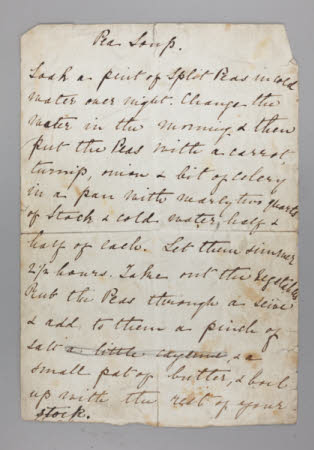 Pea Soup.
Soak a pint of Split Peas in cold
water over night. Change the
water in the morning & then
put the Peas with a carrot
turnip, onion & bit of celery
in a pan with nearly two quarts
of Stock & cold water, half &
half of each. Let them simmer
2½ hours. Take out the vegetables
Rub the Peas through a seive
& add to them a pinch of
salt a little cayenne, & a
small pat of butter, & boil
up with the rest of your
stock.